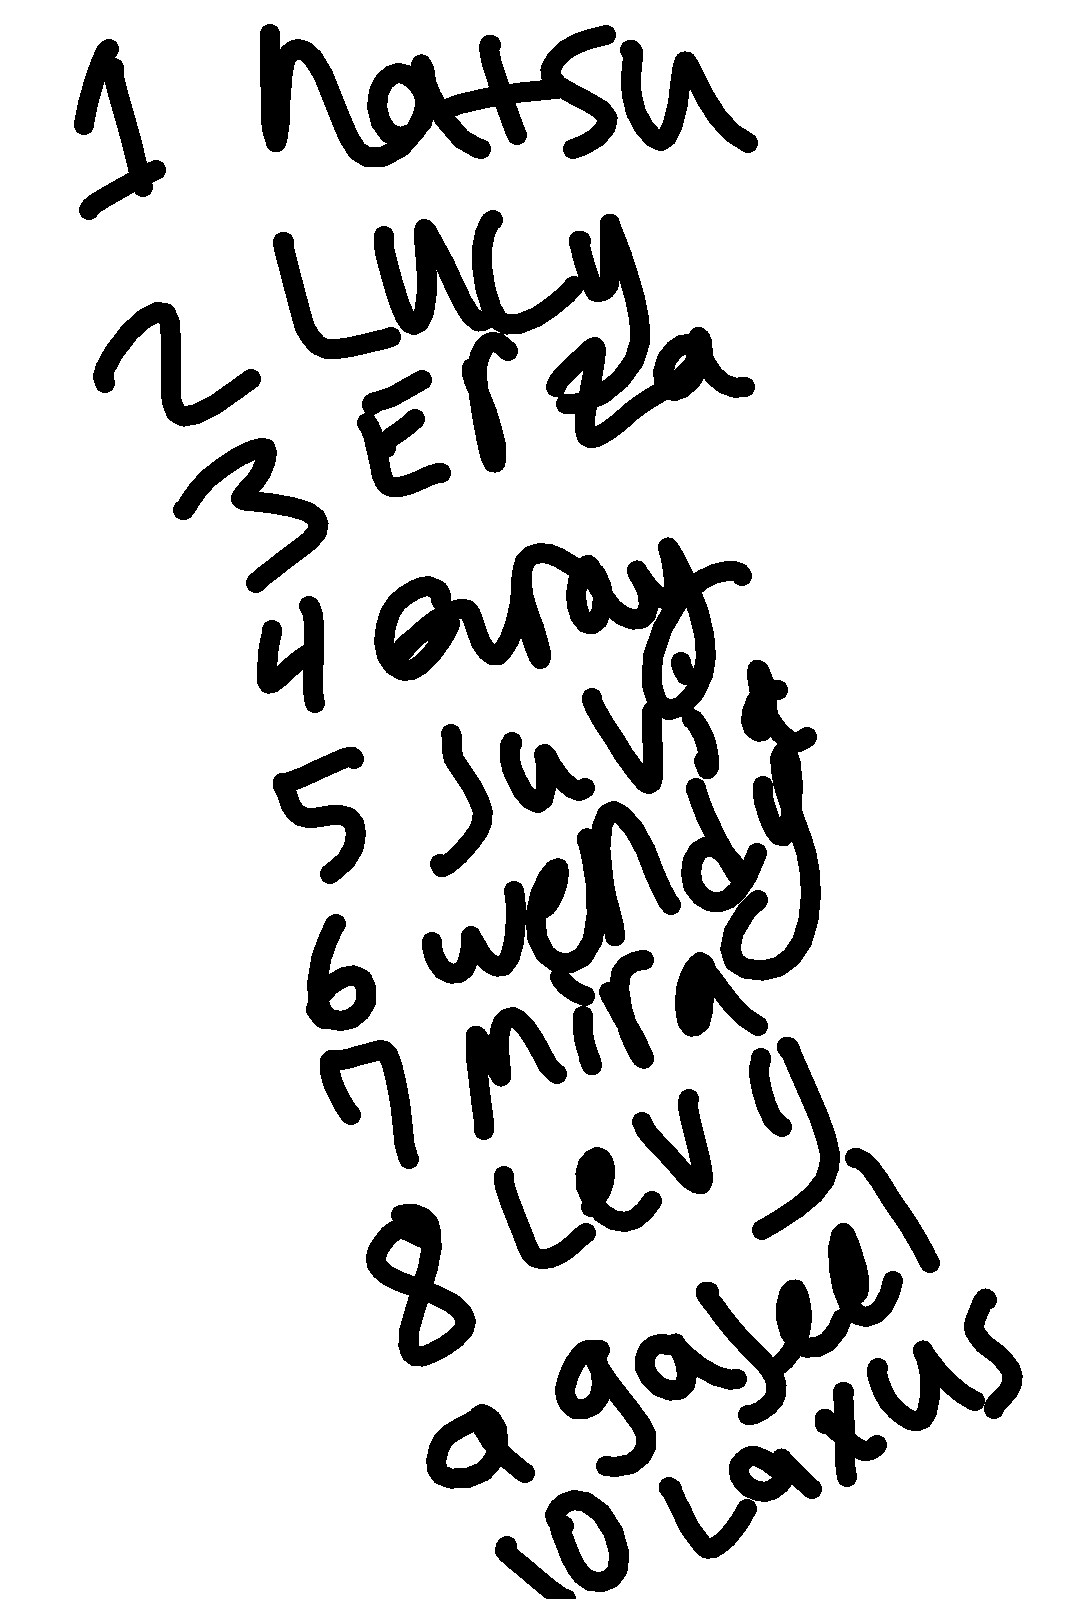 1 natsu
2 Lucy
3 Erza
4 Gray
5 Juvia
6 wendy
7 mira
8 Levy
9 gajeel
10 Laxus